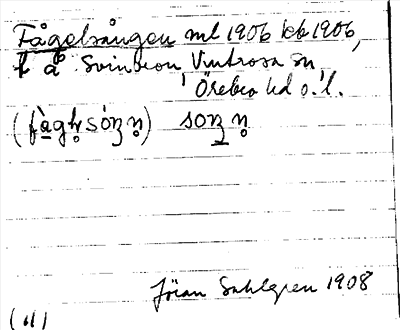 Fågelsången ml 1906 kb 1906,
f å Svinson Vintrosa sn,
Örebro hd ö. l.
(fàgḷsóŋṇ) soŋṇ
Jöran Sahlgren 1908